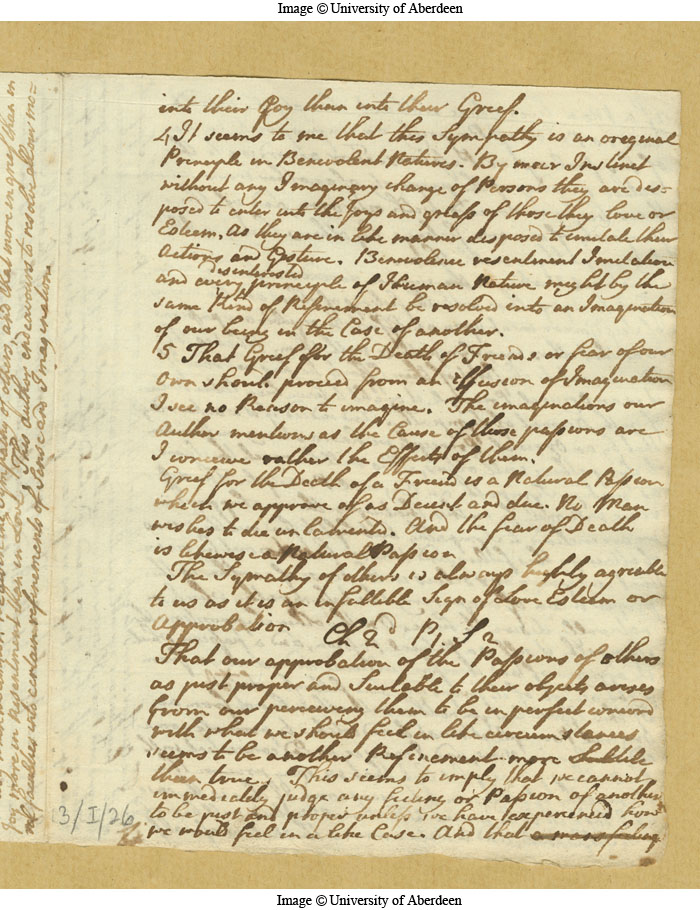 Image © University of Aberdeen
into their Joy than into their Grief.
4 It seems to me that this Sympathy is an original
Principle in Benevolent Natures. By meer Instinct
without any Imaginary change of Persons they are dis-
posed to enter into the Joys and griefs of those they love or
Esteem. As they are in like manner disposed to imitate their
Actions and Gesture. Benevolence resentment Imitation
disinterested
and every principle of Human Nature might by the
same Kind of Refinement be resolved into an Imagination
of our being in the Case of another.
5 That Grief for the Death of Friends or fear of our
own shoud proceed from an Illusion of Imagination
I see no Reason to imagine. The imaginations our
Author mentions as the Cause of those passions are
I conceive rather the Effects of them.
Grief for the Death of a Friend is a Natural Passion
which we approve of as Decent and due. No Man
wishes to die unlamented. And the fear of Death
is likewise a Natural Passion
The Sympathy of others is always highly agreable
to us as it is an infallible Sign of Love Esteem or
Approbation
Ch 2d P1 S2
That our approbation of the Passions of others
as just proper and Suitable to their objects arises
from our perceiving them to be in perfect concord
with what we should feel in like circumstances
seems to be another Refinement more Subtile
than true. This seems to imply that we cannot
immediatly judge any feeling or Passion of another
to be just and proper unless we have experienced how
we would feel in a like Case. And that a mans feeling
Sympathy of others, and that more in grief than in
Joy, more in Resentment than in Love. This author endeavours to resolve all our mo-
ral faculties into certain refinements of Sense and Imagination
3/I/26
Image © University of Aberdeen